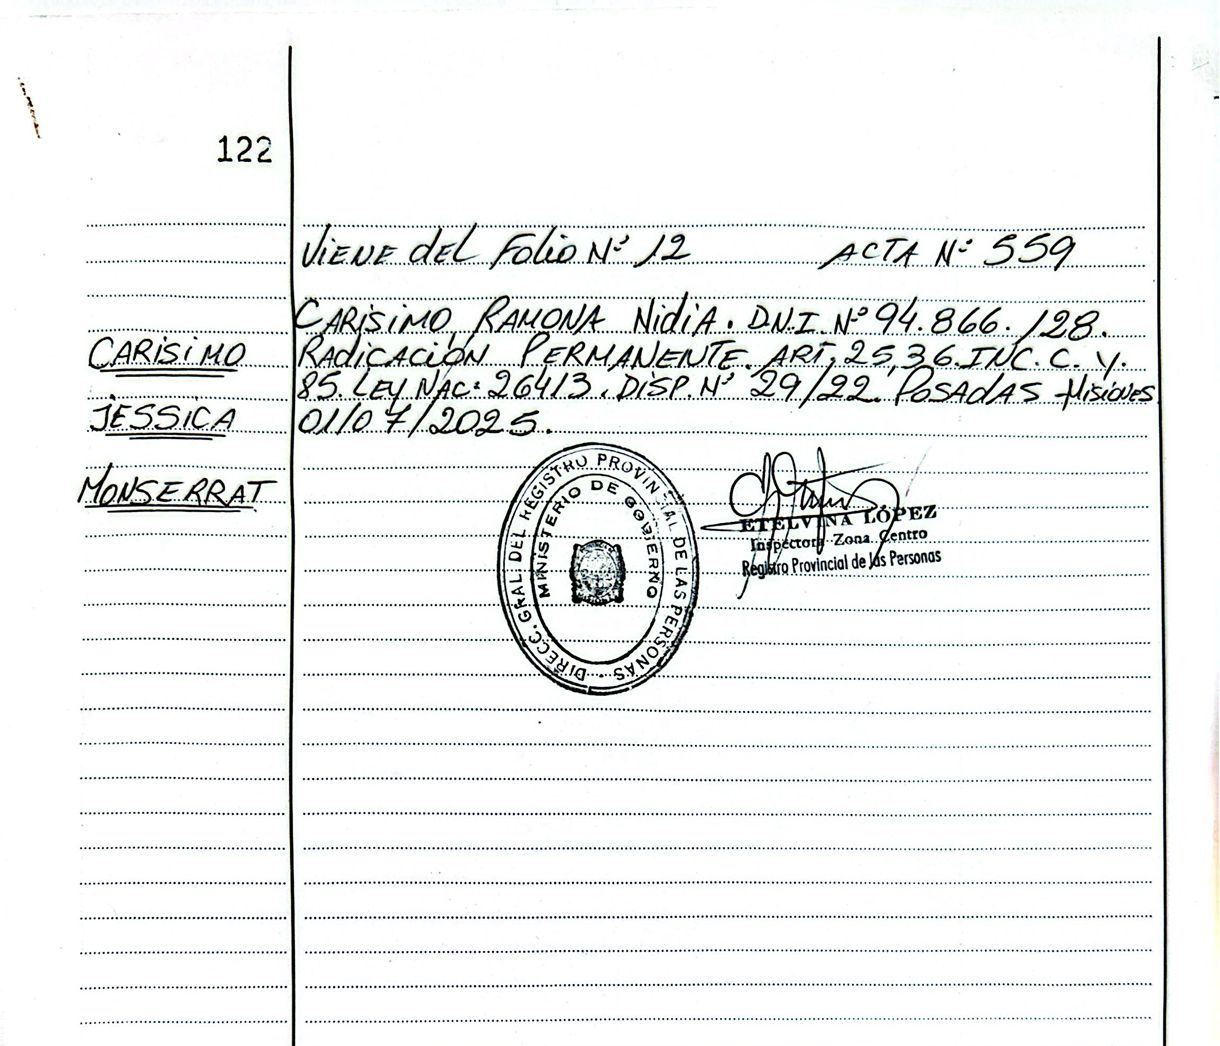 122
Viene del Folio Nº 12 ACTA Nº 559
CARISIMO, RAMONA NidiA. D.N.I. Nº 94.866.128.
CARISIMO
RAdicACIÓN PERMANENTE. ART, 25,36.INC.C.Y.
85. LEY NAC: 26413. DISP. Nº 29/22. POSADAS -Misiones
JESSICA
01/07/2025.
MONSERRAT
DIRECC. GRAL. DEL REGISTRO PROVINCIAL DE LAS PERSONAS
MINISTERIO DE GOBIERNO
ETELVINA LÓPEZ
Inspectora Zona Centro
Registro Provincial de las Personas